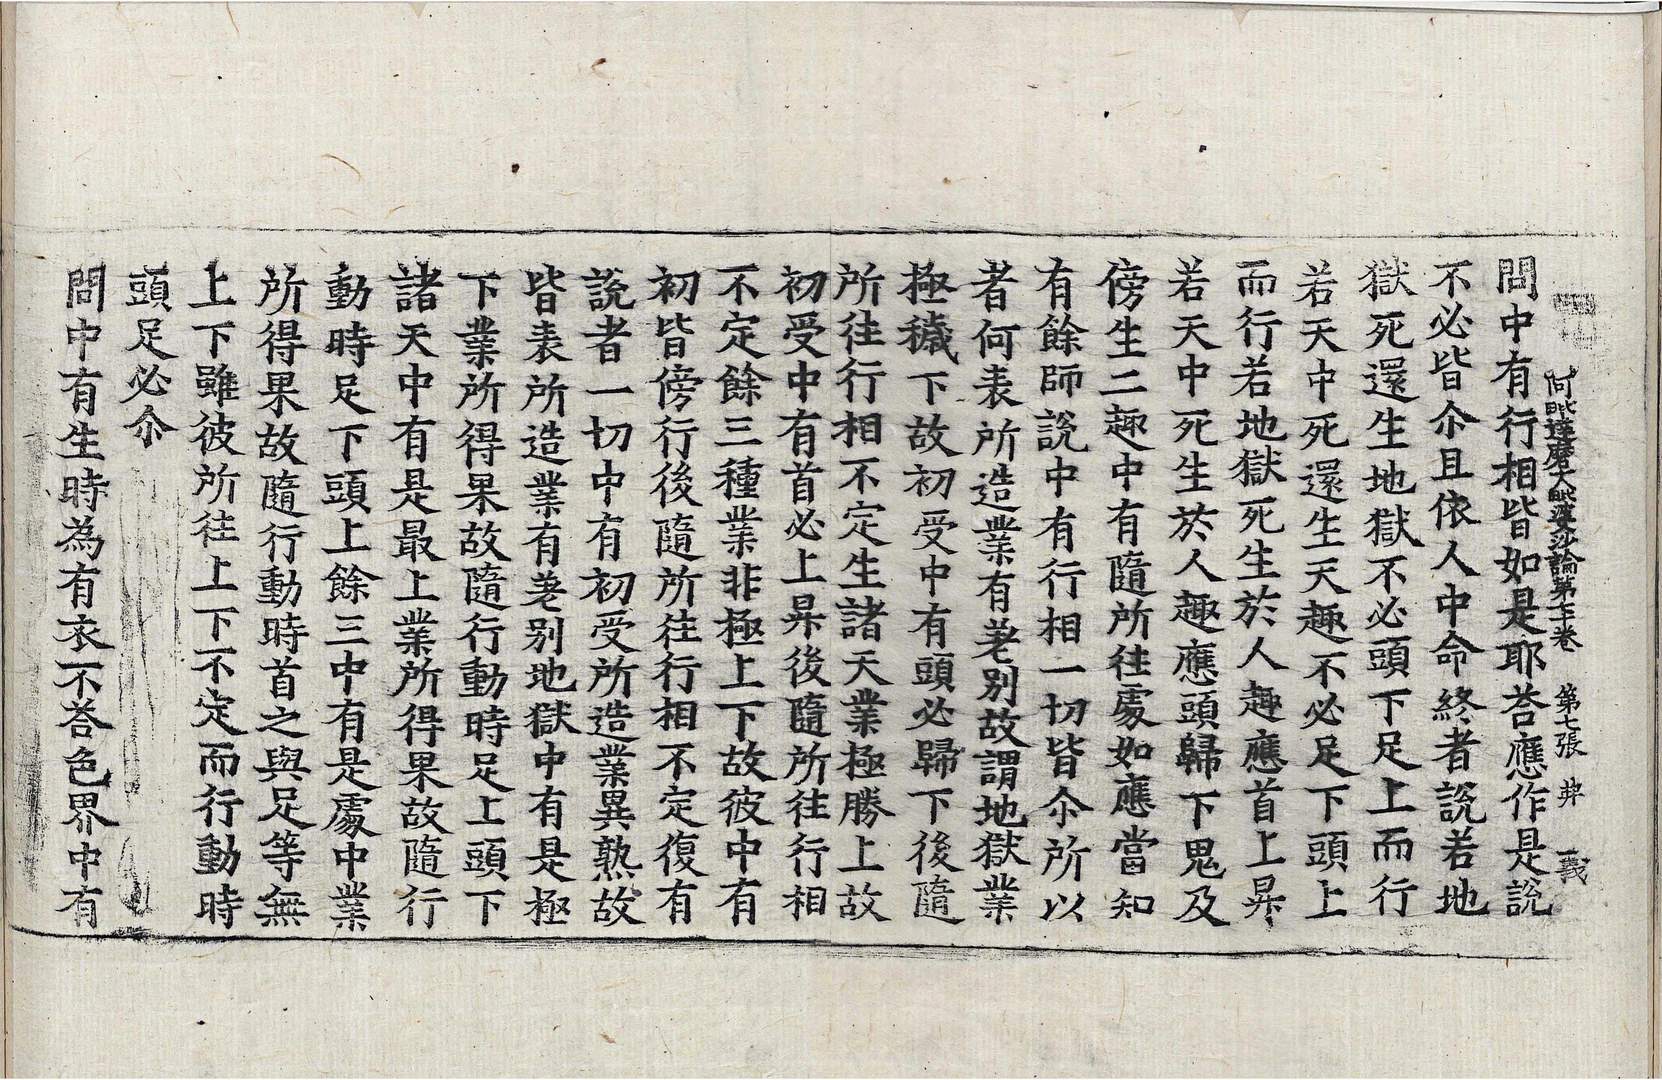 阿毗達磨大毗婆沙論第七十卷　第七張　弗　義
問中有行相皆如是耶荅應作是說
不必皆尒且依人中命終者說若地
獄死還生地獄不必頭下足上而行
若天中死還生天趣不必足下頭上
而行若地獄死生於人趣應首上昇
若天中死生於人趣應頭歸下鬼及
傍生二趣中有隨所往處如應當知
有餘師說中有行相一切皆尒所以
者何表所造業有差別故謂地獄業
極穢下故初受中有頭必歸下後隨
所往行相不定生諸天業極勝上故
初受中有首必上昇後隨所往行相
不定餘三種業非極上下故彼中有
初皆傍行後隨所往行相不定復有
說者一切中有初受所造業異熟故
皆表所造業有差別地獄中有是極
下業所得果故隨行動時足上頭下
諸天中有是最上業所得果故隨行
動時足下頭上餘三中有是處中業
所得果故隨行動時首之與足等無
上下雖彼所往上下不定而行動時
頭足必尒
問中有生時為有衣不荅色界中有